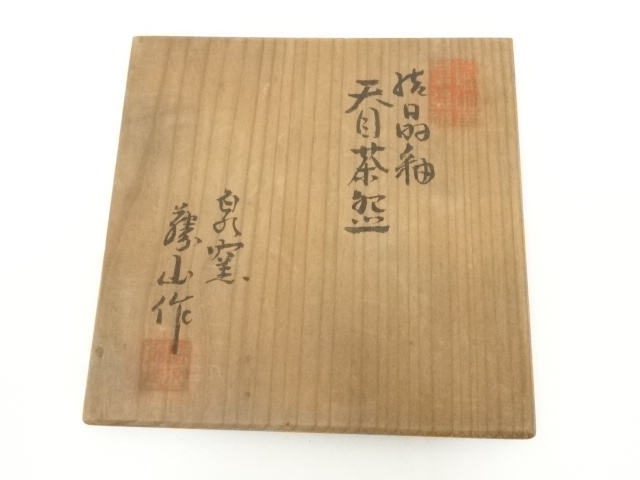 結晶釉
天目茶盌
泉窯
藤山作